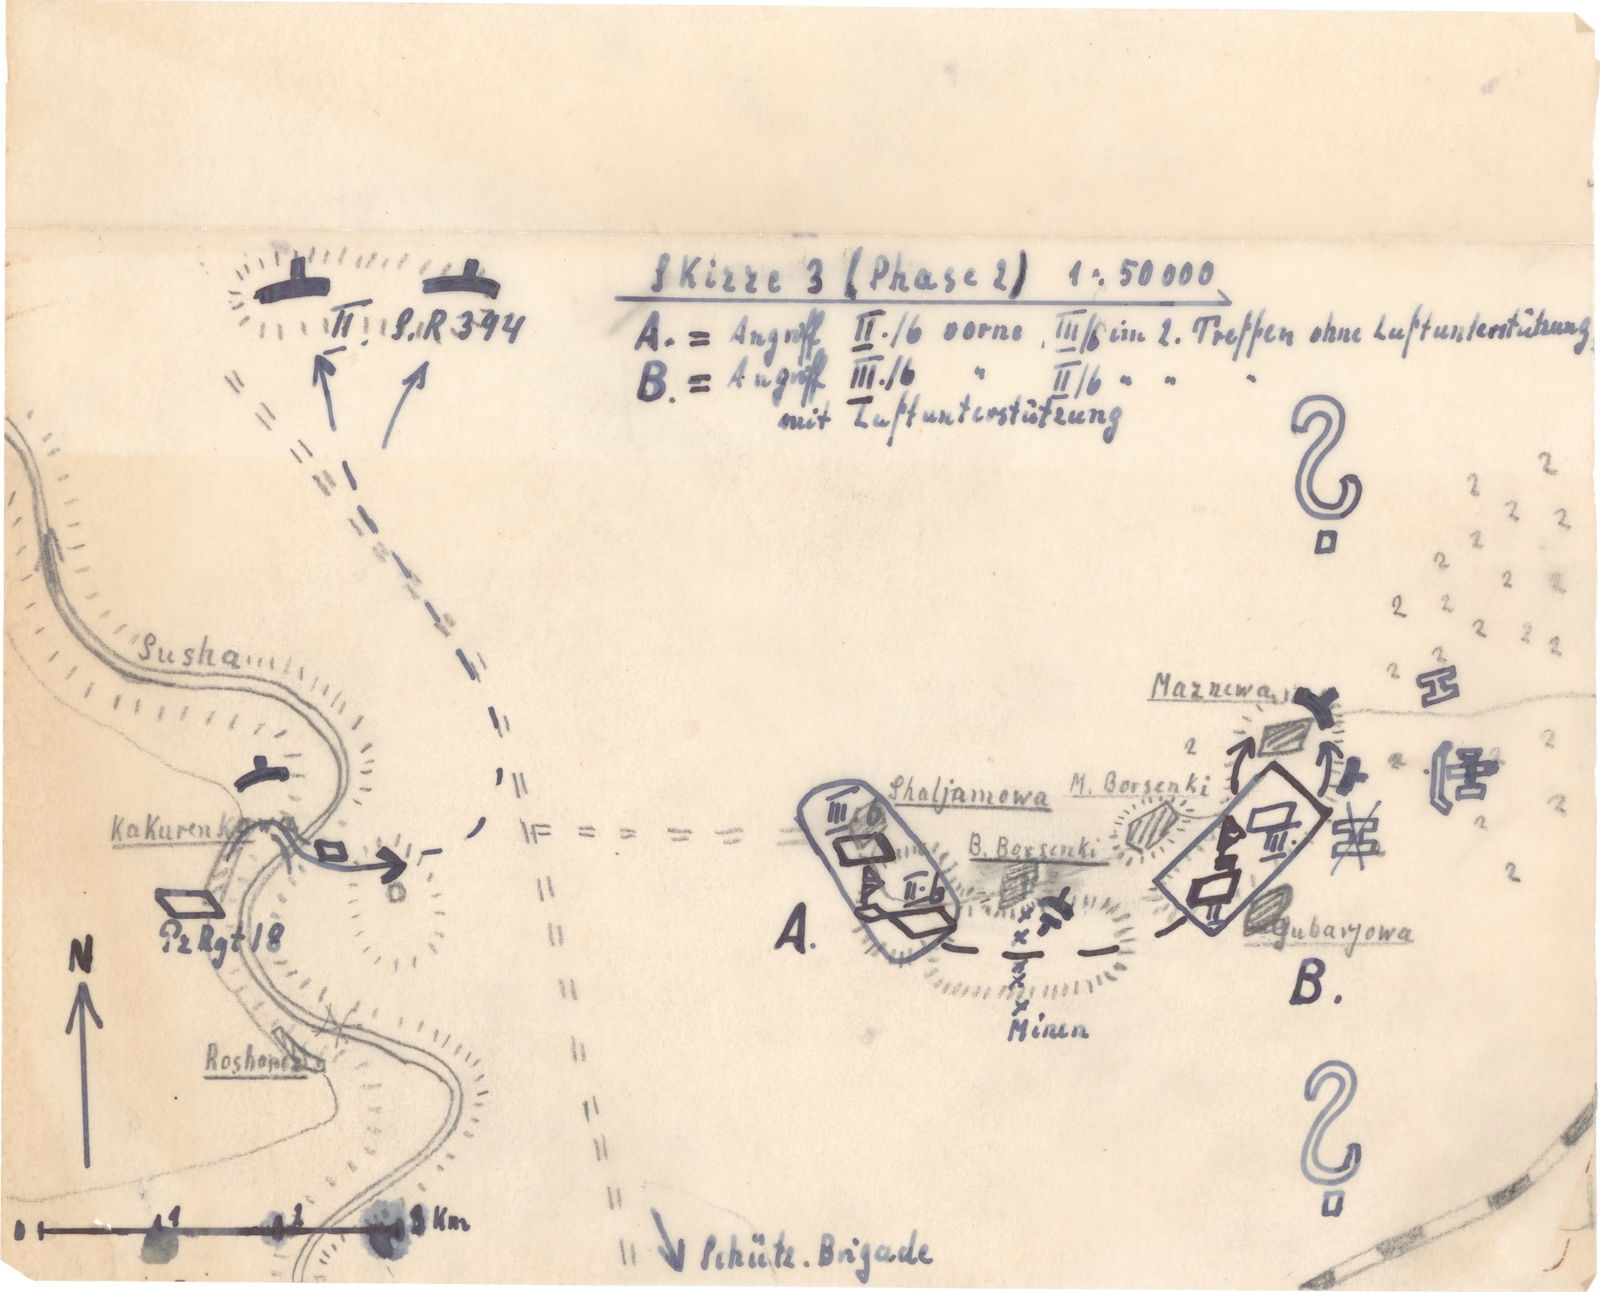 Skizze 3 (Phase 2) 1:50000
A. = Angriff II./6 vorne, III/6 im 2. Treffen ohne Luftunterstützung,
B. = Angriff III./6 " II/6 " " "
mit Luftunterstützung
II. S.R 394
Susha
Maznewa
Shaljamowa
M. Borsenki
III. 6
Kakurenk
B. Borsenki
III.
II. 6
II
Pz Rgt 18
A.
Gubarjowa
N
B.
Minen
0 1 2 3 Km
Schütz. Brigade
? 
?